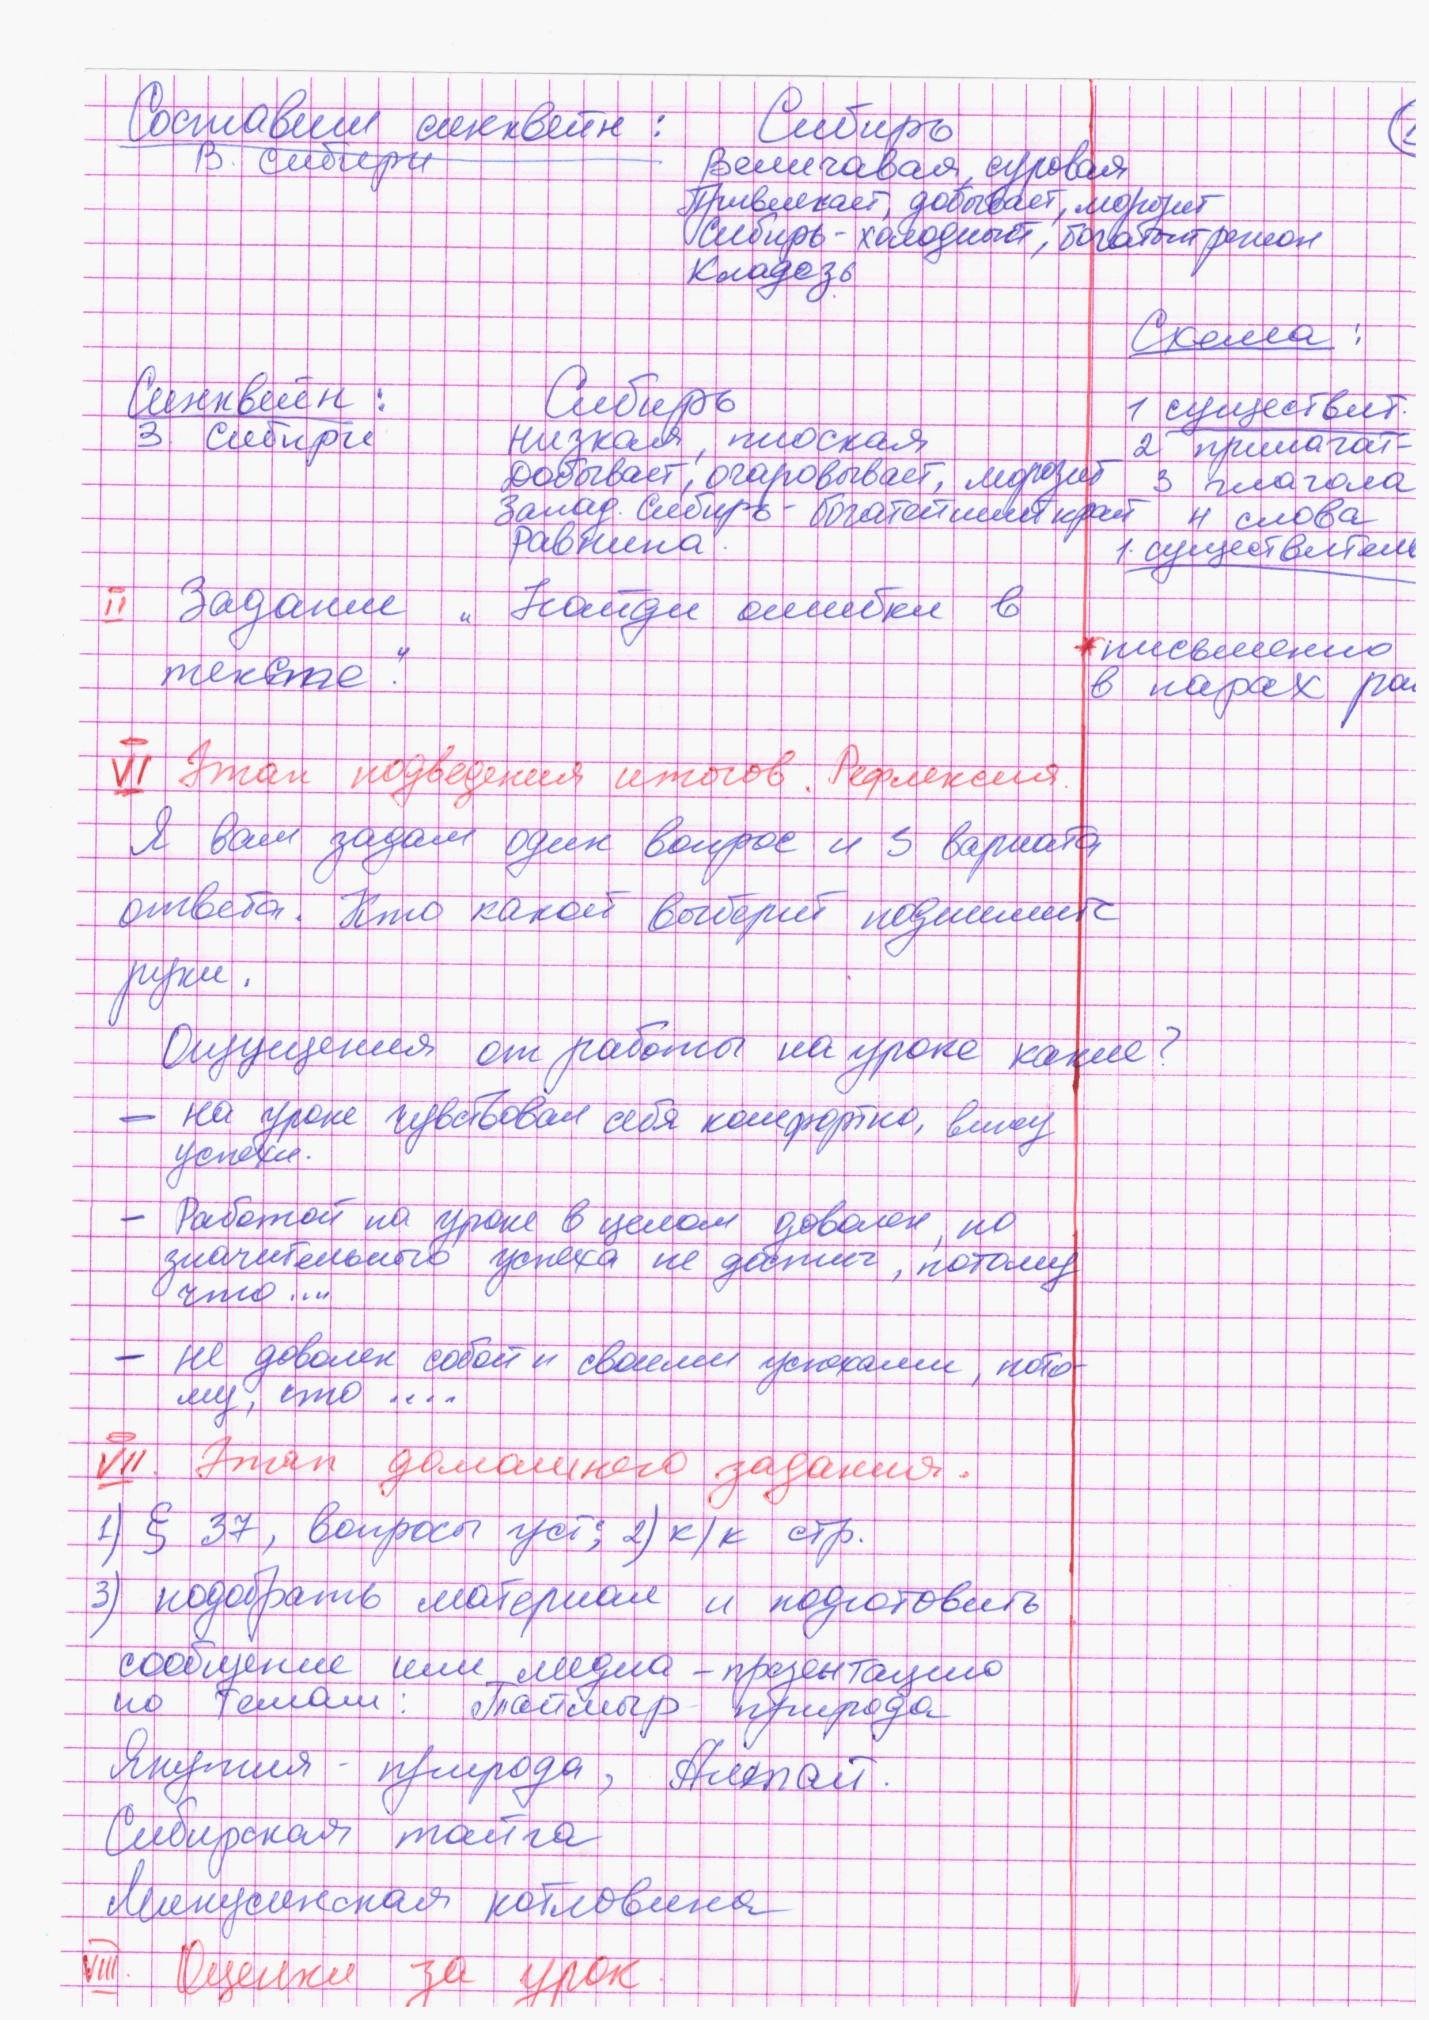 Составим синквейн: Сибирь
В. Сибири Величавая, суровая
Привлекает, добывает, морозит
Сибирь - холодный, богатый регион
Кладезь
Схема:
Синквейн: Сибирь 1 существит.
З. Сибири низкая, плоская 2 прилагат-
Добывает, очаровывает, морозит 3 глагола
Запад. Сибирь - богатейший край 4 слова
Равнина. 1. существитель
II Задание „Найди ошибки в
тексте". *письменно
в парах раб
VI Этап подведения итогов. Рефлексия.
Я вам задам один вопрос и 3 вариата
ответа. Кто какой выберит поднимите
руки.
Ощущения от работы на уроке какие?
- на уроке чувствовал себя комфортно, вижу
успехи.
- Работой на уроке в целом доволен, но
значительного успеха не достиг, потому
что ....
- не доволен собой и своими успехами, пото-
му, что ....
VII. Этап домашнего задания.
1) § 37, вопросы уст; 2) к/к стр.
3) подобрать материал и подготовить
сообщение или медиа-презентацию
по темам: Таймыр - природа
Якутия - природа, Алтай.
Сибирская тайга
Минусинская котловина
VIII. Оценки за урок.